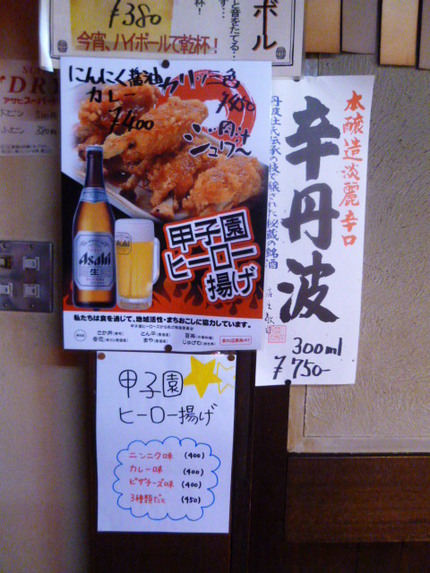 ¥380
今宵、ハイボールで乾杯!
ボール
にんにく醤油
カレー
¥400
肉汁
ジュワ〜
Asahi
生
Asahi
甲子園
ヒーロー
揚げ
私たちは食を通じて、地域活性・まちおこしに協力しています。
本醸造淡麗辛口
辛丹波
丹波杜氏伝承の技で醸された秘蔵の銘酒
300ml
¥750-
甲子園
ヒーロー揚げ
ニンニク味 (400)
カレー味 (400)
ピザチーズ味 (400)
3種類だと (950)